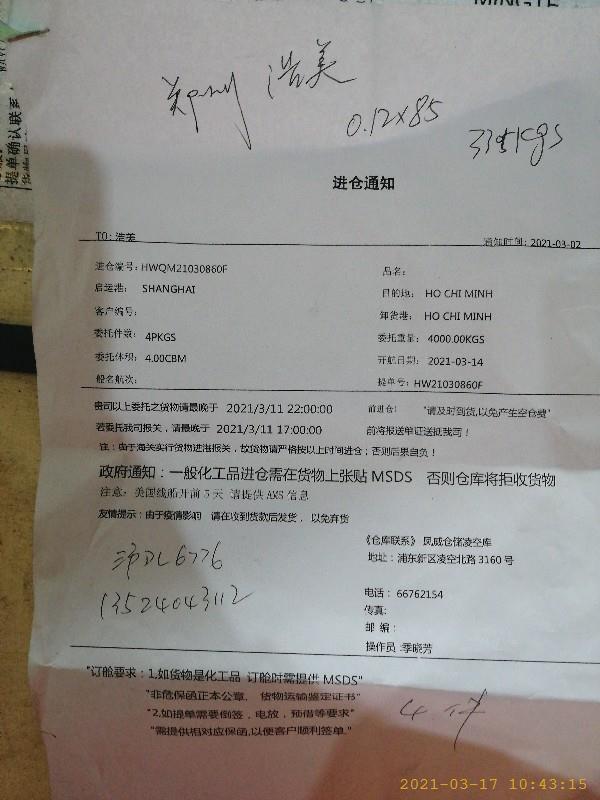 提单确认联系
郑州 浩美
0.12×85
进仓通知
TO: 浩美
通知时间: 2021-03-02
进仓编号: HWQM21030860F
品名:
启运港: SHANGHAI
目的地: HO CHI MINH
客户编号:
卸货港: HO CHI MINH
委托件数: 4PKGS
委托重量: 4000.00KGS
委托体积: 4.00CBM
开航日期: 2021-03-14
船名航次:
提单号: HW21030860F
贵司以上委托之货物请最晚于 2021/3/11 22:00:00 前进仓! "请及时到货,以免产生空仓费"
若委托我司报关, 请最晚于 2021/3/11 17:00:00 前将报送单证送抵我司!
注: 由于海关实行货物进港报关, 故货物请严格按以上时间进仓; 否则后果自负!
政府通知: 一般化工品进仓需在货物上张贴 MSDS 否则仓库将拒收货物
注意: 美国线船开前 5 天 请提供 AMS 信息
友情提示: 由于疫情影响 请在收到货款后发货, 以免弃货
《仓库联系》 凤威仓储凌空库
地址: 浦东新区凌空北路 3160 号
沪DL6776
13524043112
电话: 66762154
传真:
邮 编:
操作员 :季晓芳
"订舱要求: 1,如货物是化工品 订舱时需提供 MSDS"
"非危保函正本公章、 货物运输鉴定证书"
"2,如提单需要倒签, 电放, 预借等要求"
"需提供相对应保函,以便客户顺利签单."
4件
2021-03-17 10:43:15